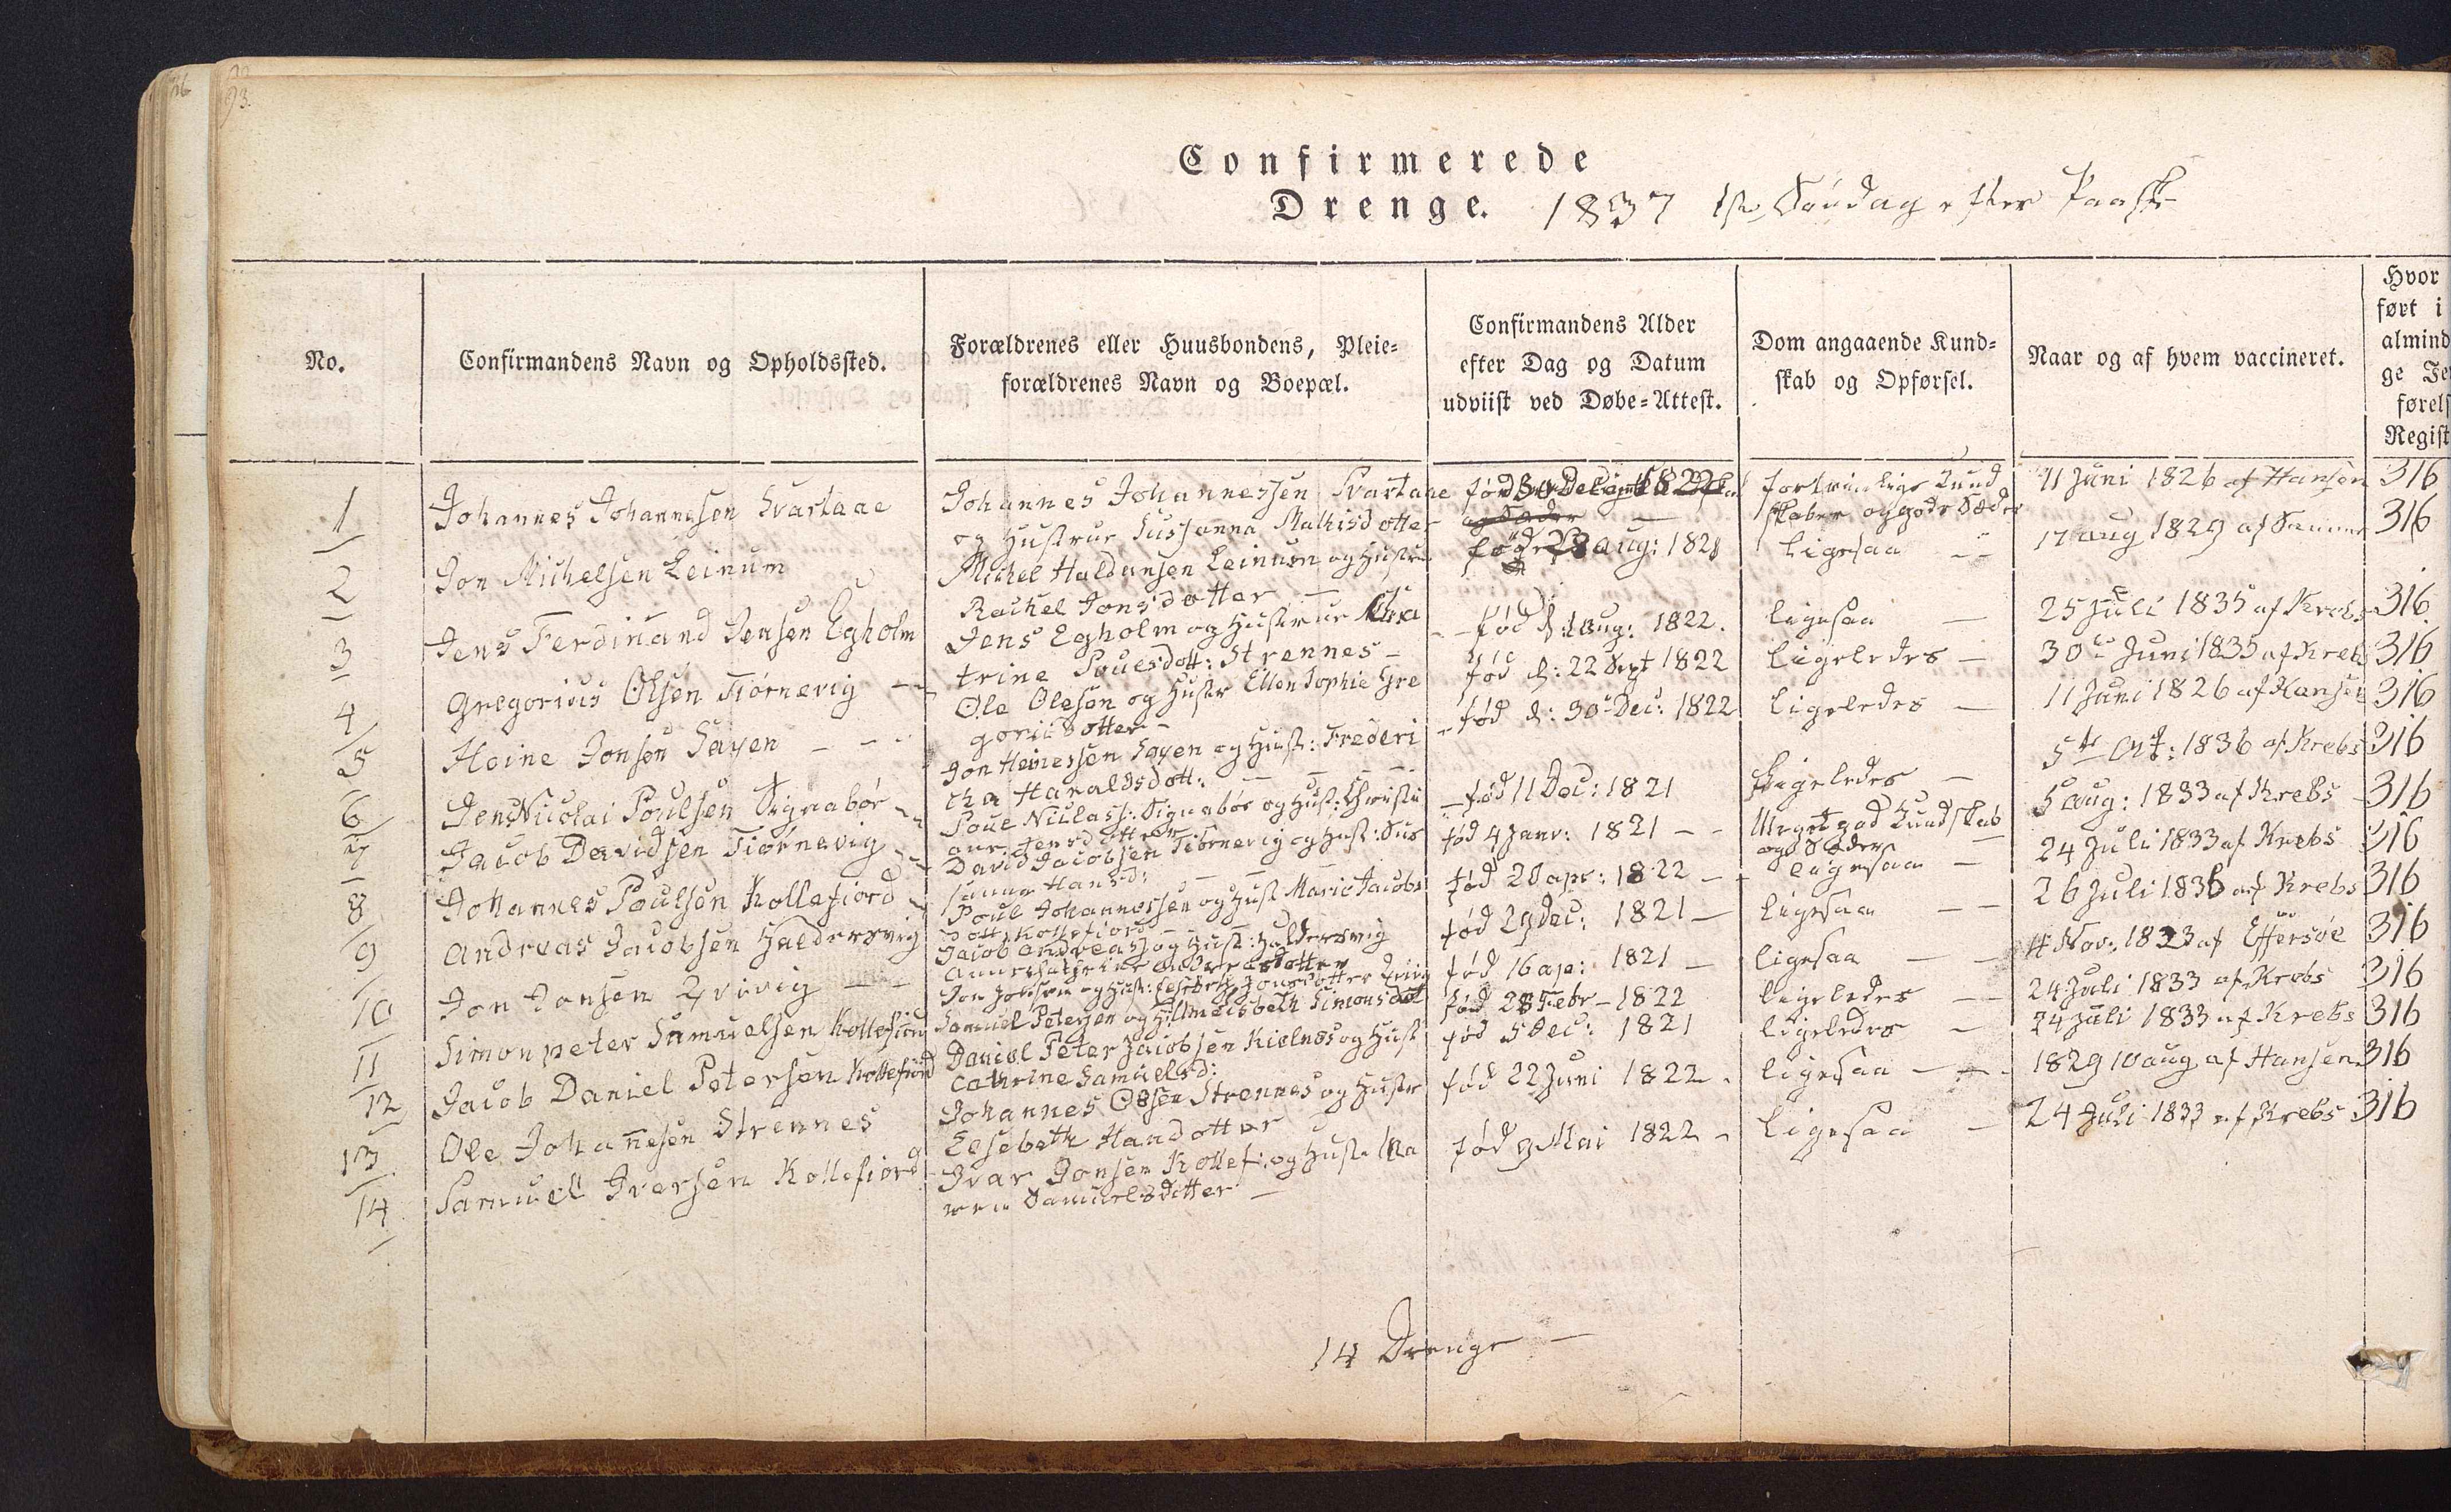 93.
Confirmerede
Drenge. 1837 1ste Søndag efter Paaske
No.
Confirmandens Navn og Opholdssted.
Forældrenes eller Huusbondens, Pleie-
forældrenes Navn og Boepæl.
Confirmandens Alder
efter Dag og Datum
udviist ved Døbe-Attest.
Dom angaaende Kund-
skab og Opførsel.
Naar og af hvem vaccineret.
Hvor
ført i
almind
ge Je
førels
Regist
1 Johannes Johannesen Svartaae
Johannes Johannessen Svartaae
og Hustrue Sussanna Mathisdotter
fød
fortrinlige Kund
skaber og gode Sæder
11 Juni 1826 af Hansen 316
2 Jon Michelsen Leinum
Michel Haldansen Leinum og Hustru
Rachel Jonsdotter —
aug: 1821
ligesaa
17 aug 1829 af Samme 316
3 Jens Ferdinand Jensen Egholm
Jens Egholm og Hustrue
trine Pouesdott: Strennes -
fød d: aug: 1822.
ligesaa —
25 Juli 1835 af Krebs 316
4 Gregorius Olsen Tiörnevig
Ole Oleson og Hustr Ellen Sophie Gre
goriidotter -
fød d: 22 Sept 1822
ligeledes —
30 Juni 1835 af Krebs 316
5 Heine Jonsen Sayen
Jon Heinessen Sayen og Hust: Frederi
cha Haraldsdott:
fød d: 30 Dec: 1822
ligeledes —
11 Juni 1826 af Hansen 316
6 Jens Nicolai Poulsen Signabör
Poue Niclass: Signabör og Hust: Christi
ane Jensdotter
fød 11 Dec: 1821
ligeledes —
5te Oct: 1836 af Krebs 316
7 Jacob Davidsen Tiörnevig
David Jacobsen Tiörnevig og Hust: Sus
sanne Hansd:
fød 4 Janv: 1821
Meget god Kundskab
og Sæder
5 aug: 1833 af Krebs 316
8 Johannes Poulsen Kollefiord
Poul Johannessen og Hust Marie Jacobs
dott Kollefiord
fød 20 apr: 1822
ligesaa —
24 Juli 1833 af Krebs 316
9 Andreas Jacobsen Haldersvig
Jacob Andreas: og Hust: Haldersvig
Anne Cathrine Andreasdotter
fød 29 Dec: 1821
ligesaa
26 Juli 1836 af Krebs 316
10 Jon Jonsen Qvivig
Jon Jonsen og Hust: Elsebeth Jonsdotter Qvivig
fød 16 ap: 1821
ligesaa
4 Nov: 1823 af Effersöe 316
11 Simonpeter Samuelsen Kollefiord
Samuel Petersen og H: Elsebeth Simonsdot
fød 28 Febr - 1822
ligeledes
24 Juli 1833 af Krebs 316
12 Jacob Daniel Petersen Kollefiord
Daniel Peter Jacobsen Kielnes og Hust
Cathrine Samuelsd:
fød 5 Dec: 1821
ligeledes
24 Juli 1833 af Krebs 316
13 Ole Johannesen Strennes
Johannes Olsen Strennes og Hustr
Elsebeth Handotter
fød 22 Juni 1822
ligesaa
1829 10 aug af Hansen 316
14 Samuel Iversen Kollefiord
Ivar Jonsen Kollef: og Hust. Ma
ren Samuelsdotter —
fød 9 Mai 1822
ligesaa
24 Juli 1833 af Krebs 316
14 Drenge —